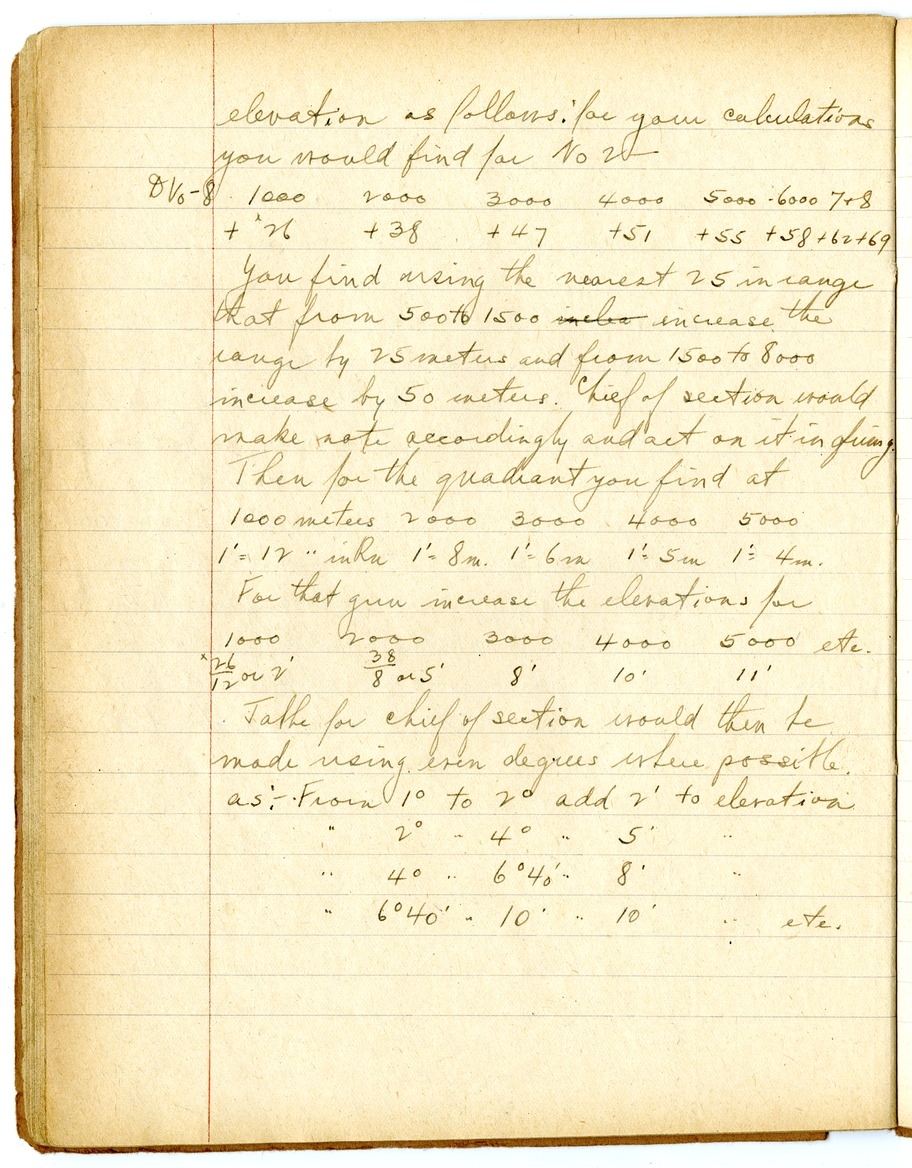 elevation as follows: for your calculations
you would find for No 2 —
DV₀-8 1000 2000 3000 4000 5000 - 6000 7+8
+ ˣ26 +38 +47 +51 +55 +58 +62 +69
You find using the nearest 25 in range
that from 500 to 1500 ~~inclea~~ increase the
range by 25 meters and from 1500 to 8000
increase by 50 meters. Chief of section would
make note accordingly and act on it in firing.
Then for the quadrant you find at
1000 meters 2000 3000 4000 5000
1' = 12 " in Rn 1' = 8m. 1' = 6m 1' = 5m 1' = 4m.
For that gun increase the elevations for
1000 2000 3000 4000 5000 etc.
ˣ26/12 or 2' 38/8 or 5' 8' 10' 11'
Table for chief of section would then be
made using even degrees where possible.
as:- From 1° to 2° add 2' to elevation
" 2° " 4° " 5' "
" 4° " 6°40' " 8' "
" 6°40' " 10' " 10' " etc.